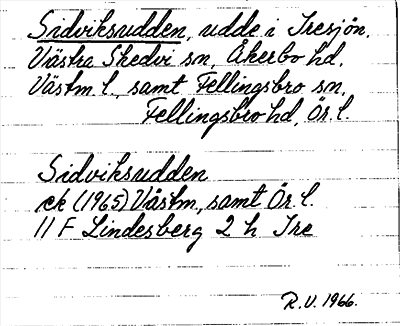 Sidviksudden, udde i Tresjön,
Västra Skedvi sn, Åkerbo hd,
Västm. l., samt Fellingsbro sn,
Fellingsbro hd, Ör. l.
Sidviksudden
ek (1965) Västm., samt Ör. l.
11 F Lindesberg 2 h Tre
R.V. 1966.